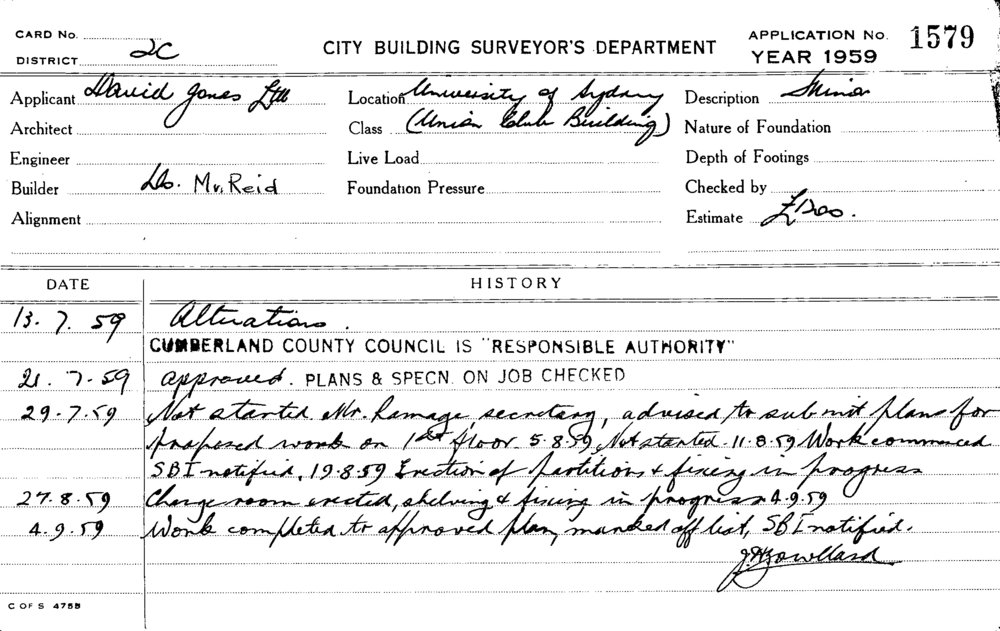 CARD No.
DISTRICT 2C
CITY BUILDING SURVEYOR'S DEPARTMENT
APPLICATION No. 1579
YEAR 1959
Applicant David Jones Ltd
Location University of Sydney
Description Minor
Architect
Class (Union Club Building)
Nature of Foundation
Engineer
Live Load
Depth of Footings
Builder Do. Mr. Reid
Foundation Pressure
Checked by
Alignment
Estimate
DATE HISTORY
13. 7. 59 Alterations.
CUMBERLAND COUNTY COUNCIL IS "RESPONSIBLE AUTHORITY"
21. 7-59 approved. PLANS & SPECN. ON JOB CHECKED
29-7.59 Not started Mr. Ramage, secretary, advised to submit plans for
proposed work on 1st floor 5.8.59, Not started. 11.8.59 Work commenced
SBI notified. 19.8.59 Erection of partitions & fixing in progress
27.8.59 Change room erected, shelving & fixing in progress 4.9.59
4.9.59 Work completed to approved plan, marked off list, SBI notified.
C OF S 475B